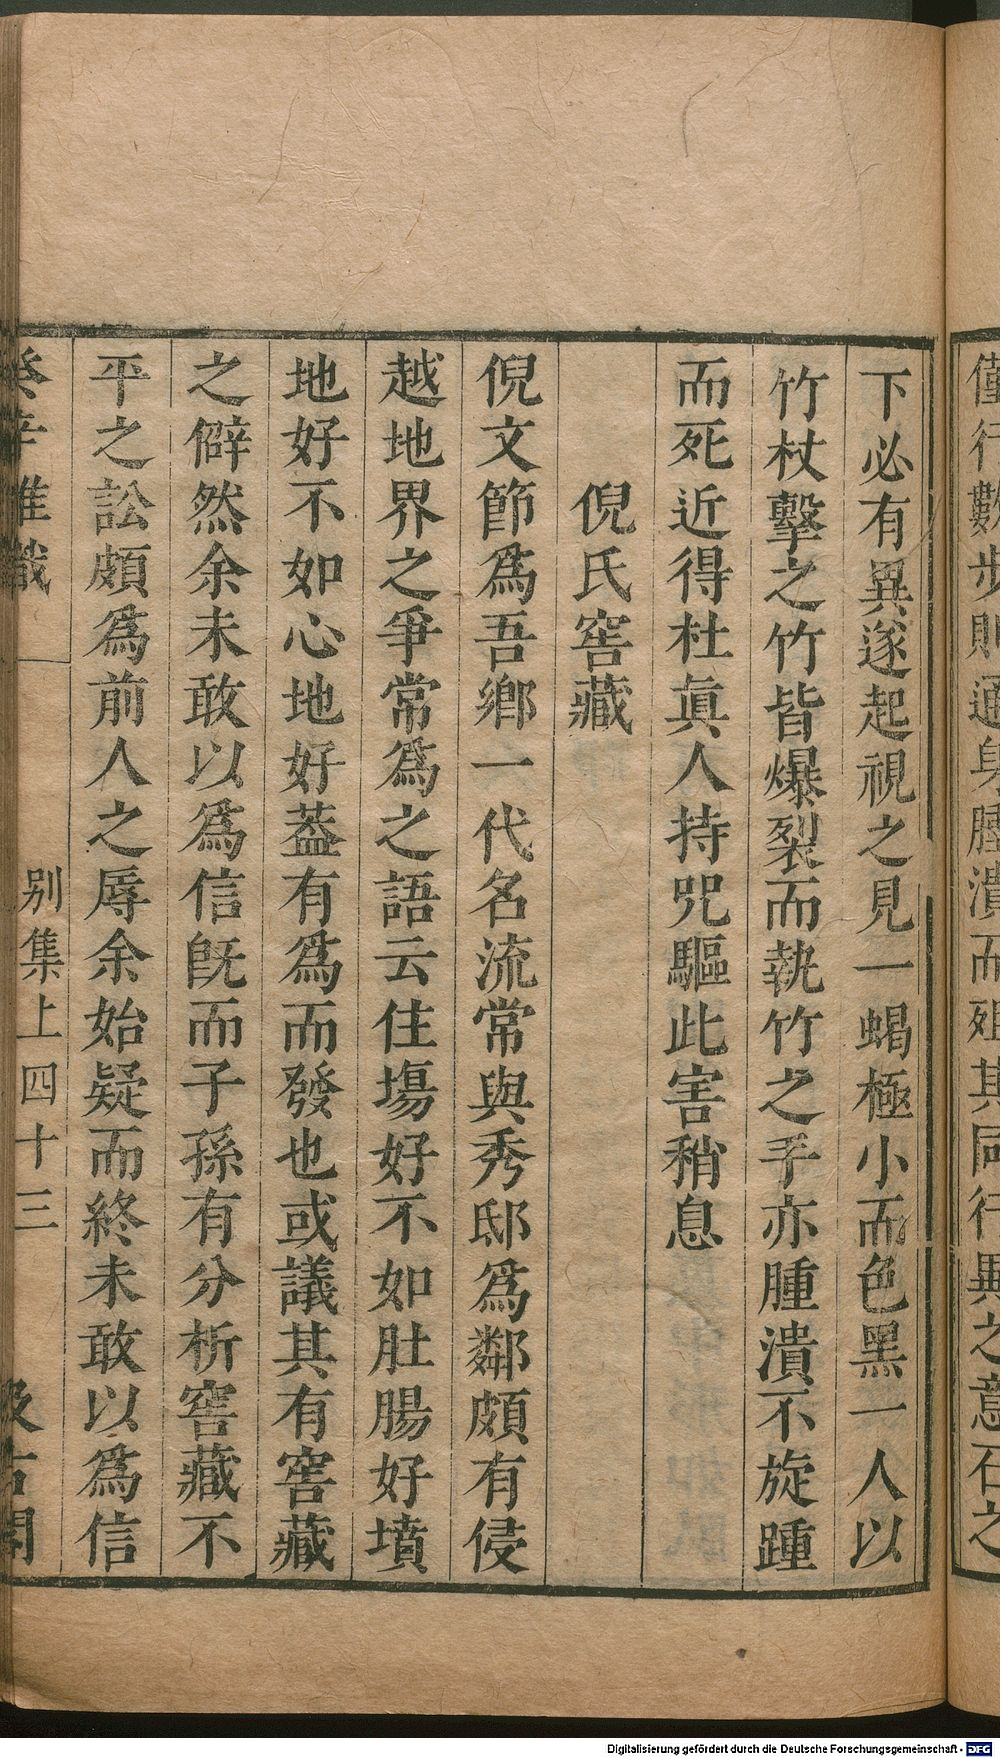 僅行數步則通身腫潰而殂其同行異之意石之
下必有異遂起視之見一蝎極小而色黑一人以
竹杖擊之竹皆爆裂而執竹之手亦腫潰不旋踵
而死近得杜眞人持咒驅此害稍息
倪氏窖藏
倪文節爲吾鄉一代名流常與秀邸爲鄰頗有侵
越地界之爭常爲之語云住塲好不如肚腸好墳
地好不如心地好葢有爲而發也或議其有窖藏
之僻然余未敢以爲信旣而子孫有分析窖藏不
平之訟頗爲前人之辱余始疑而終未敢以爲信
癸辛雜識 別集上四十三 汲古閣
Digitalisierung gefördert durch die Deutsche Forschungsgemeinschaft - DFG